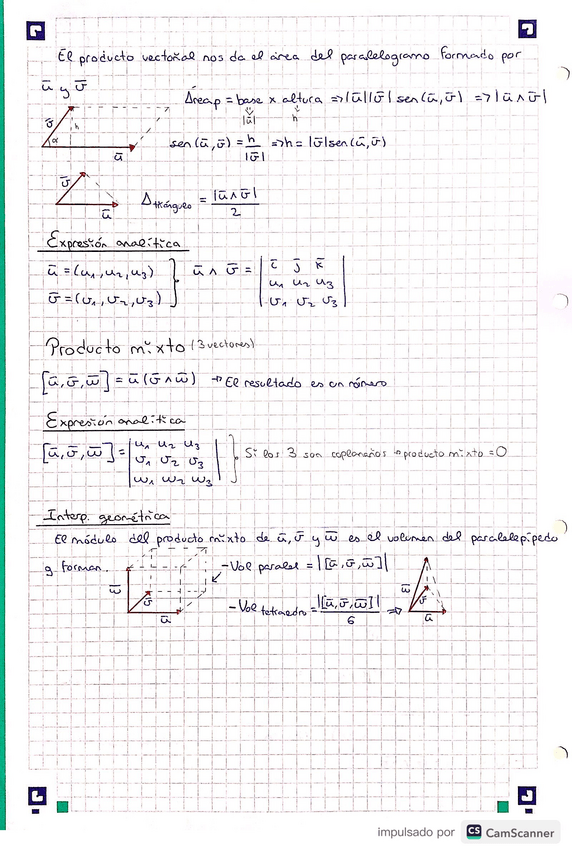 El producto vectorial nos da el área del paralelogramo formado por
ū y v̄
Áreap = base x altura => |ū||v̄| sen(ū,v̄) => |ū ∧ v̄|
|ū| h
v̄ h α ū
sen(ū,v̄) = h/|v̄| => h = |v̄| sen(ū,v̄)
v̄ ū
Δtriángulo = |ū ∧ v̄|/2
Expresión analítica
ū = (u1, u2, u3)
v̄ = (v1, v2, v3)
ū ∧ v̄ = | i̅ j̅ k̅ |
| u1 u2 u3 |
| v1 v2 v3 |
Producto mixto (3 vectores)
[ū, v̄, w̄] = ū (v̄ ∧ w̄) → El resultado es un número
Expresión analítica
[ū, v̄, w̄] = | u1 u2 u3 |
| v1 v2 v3 |
| w1 w2 w3 |
Si los 3 son coplanarios → producto mixto = 0
Interp. geométrica
El módulo del producto mixto de ū, v̄ y w̄ es el volumen del paralelepípedo
q forman.
w̄ v̄ ū
- Vol paralel = |[ū, v̄, w̄]|
- Vol tetraedro = |[ū, v̄, w̄]|/6 =>
w̄ v̄ ū
impulsado por CS CamScanner